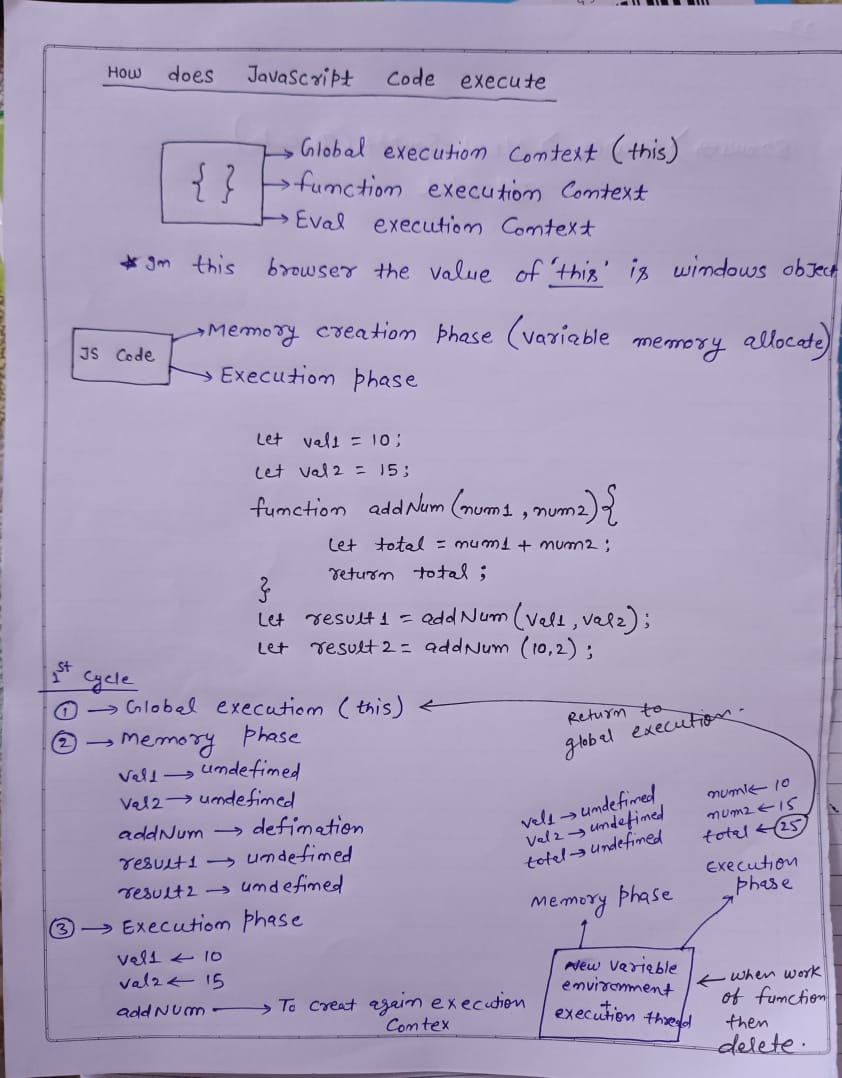 How does JavaScript Code execute
{ } → Global execution Context (this)
→ function execution Context
→ Eval execution Context
* In this browser the value of 'this' is windows object
JS Code → Memory creation phase (variable memory allocate)
→ Execution phase
Let val1 = 10;
Let val2 = 15;
function addNum (num1, num2) {
Let total = num1 + num2;
return total;
}
Let result1 = addNum (val1, val2);
Let result2 = addNum (10,2);
1st Cycle
① → Global execution (this) ←
Return to
global execution.
② → Memory phase
val1 → undefined
val2 → undefined
addNum → defination
result1 → undefined
result2 → undefined
③ → Execution phase
val1 ← 10
val2 ← 15
addNum → To creat again execution
Contex
val1 → undefined
val2 → undefined
total → undefined
Memory phase
num1 ← 10
num2 ← 15
total ← 25
Execution
phase
New variable
environment
+
execution thread
← when work
of function
then
delete.